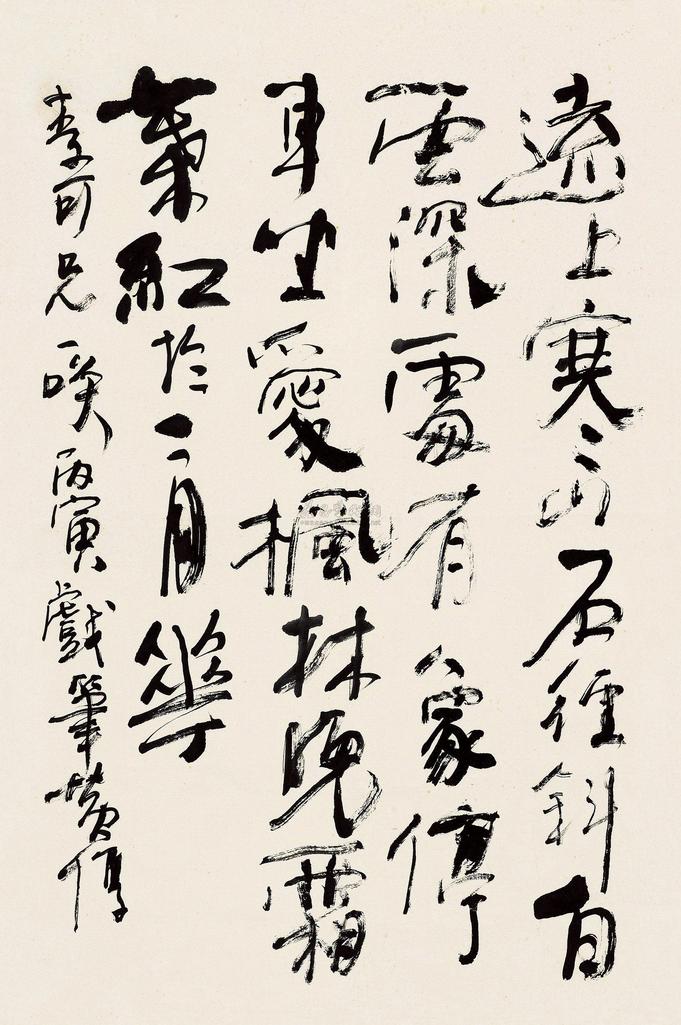 遠上寒山石徑斜白
雲深處有人家停
車坐愛楓林晚霜
葉紅於二月花
李可兄唉丙寅戲筆黄